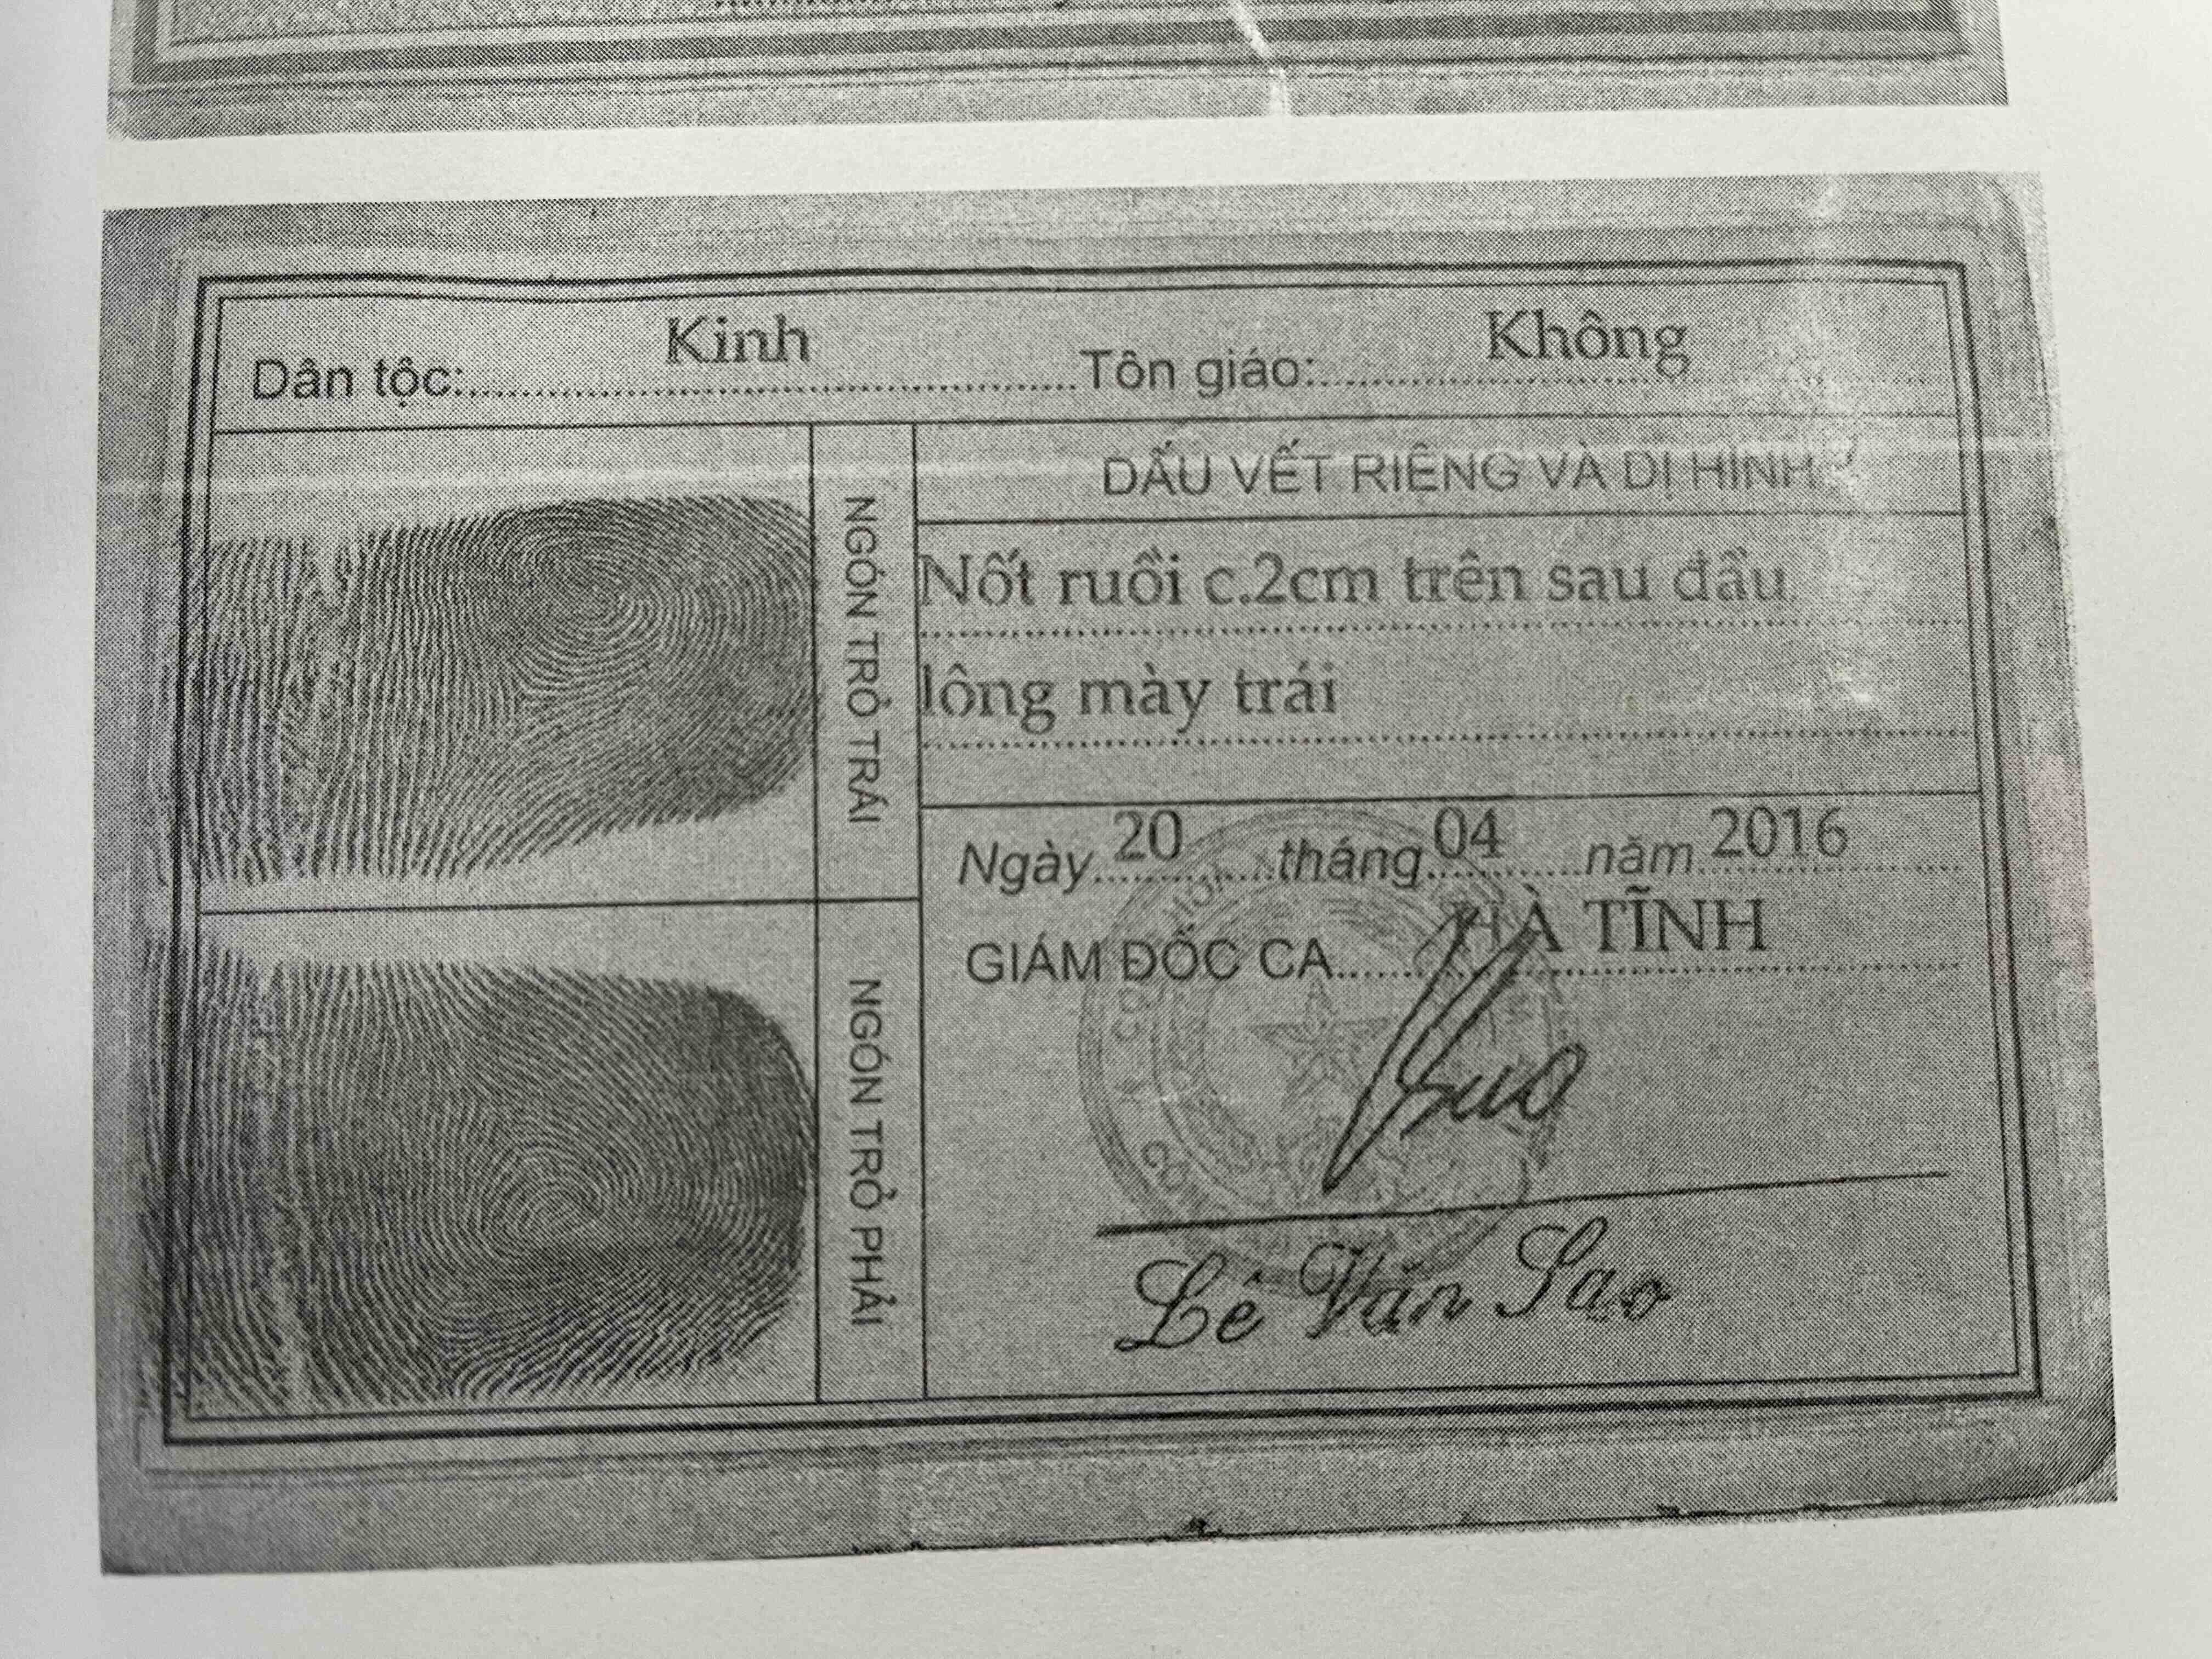 Dân tộc: Kinh Tôn giáo: Không
NGÓN TRỎ TRÁI
DẤU VẾT RIÊNG VÀ DỊ HÌNH
Nốt ruồi c.2cm trên sau đầu
lông mày trái
Ngày 20 tháng 04 năm 2016
GIÁM ĐỐC CA HÀ TĨNH
NGÓN TRỎ PHẢI
Lê Văn Sao